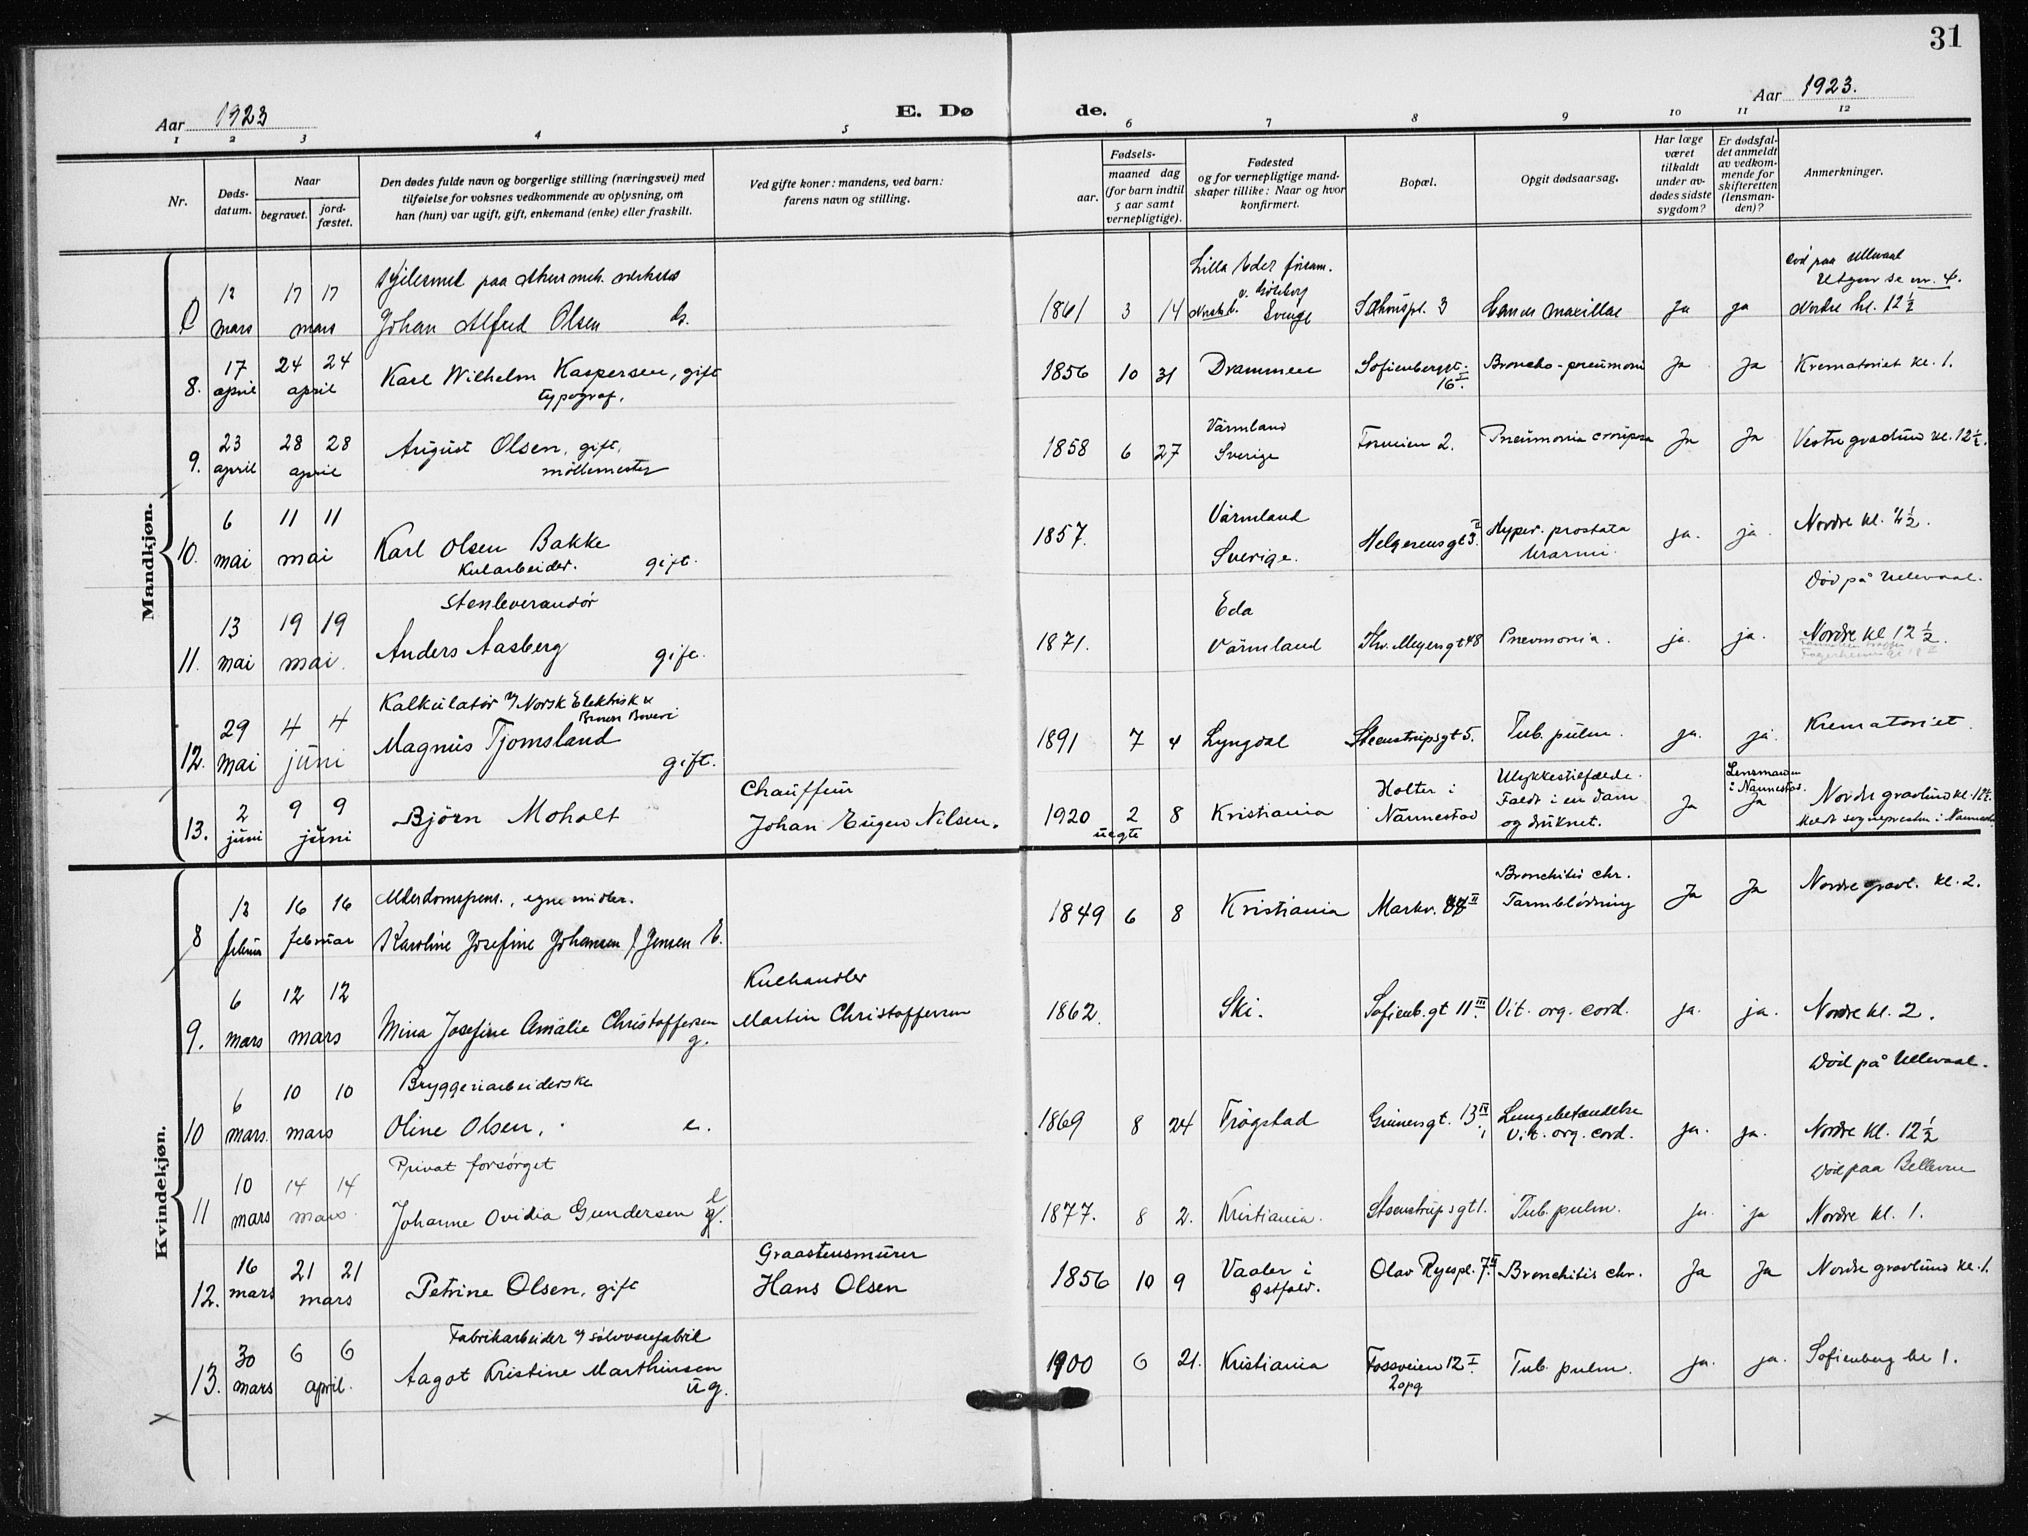 31
Aar 1923
E. Dø de.
Aar 1923.
1 2 3 4 5 6 7 8 9 10 11 12
Nr.
Døds-
datum.
Naar
begravet.
jord-
fæstet.
Den dødes fulde navn og borgerlige stilling (næringsvei) med
tilføielse for voksnes vedkommende av oplysning, om
han (hun) var ugift, gift, enkemand (enke) eller fraskilt.
Ved gifte koner: mandens, ved barn:
farens navn og stilling.
Fødsels-
aar.
maaned dag
(for barn indtil
5 aar samt
vernepligtige).
Fødested
og for vernepligtige mand-
skaper tillike: Naar og hvor
konfirmert.
Bopæl.
Opgit dødsaarsag.
Har læge
været
tilkaldt
under av-
dødes sidste
sygdom?
Er dødsfal-
det anmeldt
av vedkom-
mende for
skifteretten
(lensman-
den)?
Anmerkninger.
Mandkjøn.
12 17 17
mars mars
paa mek.
Johan Alfred Olsen
1861 3 14
Lilla Eder
Sverige
3
ja ja
død paa Ullevaal
nr. 4.
Nordre kl. 12 1/2
8. 17 24 24
april april
Karl Wilhelm Kaspersen, gift
typograf.
1856 10 31 Drammen
Sofienberggt.
16
Broncho-pneumoni
Ja Ja Krematoriet kl. 1.
9. 23 28 28
april april
August Olsen, gift,
møllemester
1858 6 27
Värmland
Sverige
2.
Pneumonia crouposa
Ja Ja Vestre gravlund kl. 12 1/2.
10. 6 11 11
mai mai
Karl Olsen Bakke
Kularbeider. gift.
1857.
Värmland
Sverige.
Helgesensgt 3. II
Hyper. prostata
ja. ja.
Nordre kl.
11. 13 19 19
mai mai.
Stenleverandør
Anders Aasberg gift.
1871.
Eda
Värmland
Thv. Meyersgt 48
Pnevmonia.
ja. ja.
Død på Ullevaal.
Nordre kl 12 1/2.
12. 29 4 4
mai juni
Kalkulatør v/ Norsk Elektrisk &
Brown Boveri
Magnus Tjomsland
gift.
1891 7 4 Lyngdal
Steenstrupsgt 5.
Tub. pulm.
ja. ja.
Krematoriet
13. 2 9 9
juni juni
Bjørn Moholt
Chauffeur
Johan Eugen Nilsen.
1920 2 8
uegte
Kristiania
Holter i
Nannestad
Ulykkestilfælde.
Faldt i en dam
og druknet.
Ja
Lensmanden
i Nannestad.
Ja
Nordre gravlund kl. 12 1/2.
sognepresten i Nannestad
Kvindekjøn.
8 12 16 16
februar februar
Alderdomspens., egne midler.
Karoline Josefine Johansen f. Jensen E.
1849 6 8 Kristiania
Markv. II
Bronchitis chr.
Tarmblødning
Ja Ja
Nordre gravl. kl. 2.
9. 6 12 12
mars mars
Mina Josefine Amalie Christoffersen
g.
Kulhandler
Martin Christoffersen
1862. Ski.
Sofienb.gt 11 III.
Vit. org. cord.
ja. ja.
Nordre kl. 2.
10 6 10 10
mars. mars
Bryggeriarbeiderske
Oline Olsen. e.
1869 8 24 Trøgstad
Grünersgt. 13 IV
i
Lungebetændelse
Vit. org. cord.
ja. ja.
Død på Ullevaal.
Nordre kl. 12 1/2
11 10 14 14
mars mars.
Privat forsørget
Johanne Ovidia Gundersen
1877. 8 2. Kristiania.
Steenstrupsgt 1.
Tub. pulm.
ja. ja
Død paa Bellevue
Nordre kl. 1.
12. 16 21 21
mars mars
Petrine Olsen, gift
Graastensmurer
Hans Olsen
1856 10 9
Vaaler i
Østfold.
Olav Ryespl. 7 II
Bronchitis chr.
Ja Ja
Nordre gravlund kl. 1.
13. 30 6 6
mars april.
Fabrikarbeider v/ sølvvarefabrik
Aagot Kristine Marthinsen
ug.
1900 6 21. Kristiania
Fossveien 12 I
2 opg
Tub. pulm.
ja. ja.
Sofienberg kl 1.